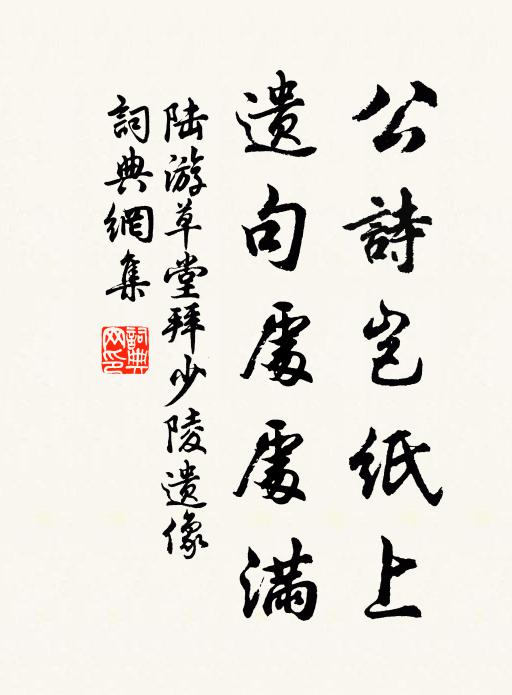 公詩豈紙上
遺句處處滿
陆游草堂拜少陵遺像
詞典網集
詞典网印